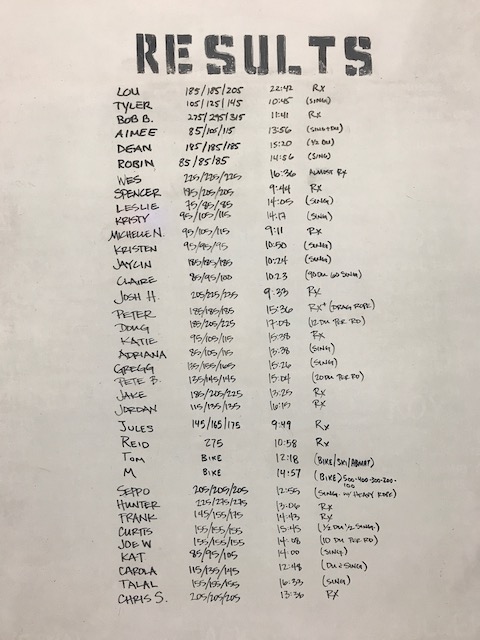 RESULTS
LOU 185/185/205 22:42 RX
TYLER 105/125/145 10:45 (SING)
BOB B. 275/295/315 11:41 RX
AIMEE 85/105/115 13:56 (SING+DU)
DEAN 185/185/185 15:20 (1/2 DU)
ROBIN 85/85/85 14:56 (SING)
WES 225/225/225 16:36 ALMOST RX
SPENCER 185/205/205 9:44 RX
LESLIE 75/85/85 14:05 (SING)
KRISTY 95/105/115 14:17 (SING)
MICHELLE N. 95/105/115 9:11 RX
KRISTEN 95/95/95 10:50 (SING)
JAYLIN 185/185/185 10:24 (SING)
CLAIRE 85/95/100 10:23 (90 DU 60 SING)
JOSH H. 205/225/235 9:33 RX
PETER 185/185/185 15:36 RX+ (DRAG ROPE)
DOUG 185/205/225 17:08 (12 DU PER RD)
KATIE 95/105/115 15:38 RX
ADRIANA 85/105/115 13:38 (SING)
GREGG 135/155/165 15:26 (SING)
PETE B. 135/145/145 15:04 (20 DU PER RD)
JAKE 185/205/225 13:25 RX
JORDAN 115/135/135 16:15 RX
JULES 145/165/175 9:49 RX
REID 275 10:58 RX
TOM BIKE 12:18 (BIKE/SKI/ABMAT)
M BIKE 14:57 (BIKE) 500-400-300-200-100
SEPPO 205/205/205 12:55 (SING. W/ HEAVY ROPE)
HUNTER 225/275/275 13:06 RX
FRANK 145/155/175 14:43 RX
CURTIS 155/155/155 15:45 (1/2 DU 1/2 SING.)
JOE W 155/155/155 14:08 (10 DU PER RD)
KAT 85/95/105 14:00 (SING)
CAROLA 115/135/145 12:48 (DU & SING)
TALAL 155/155/155 16:33 (SING)
CHRIS S. 205/205/205 13:36 RX